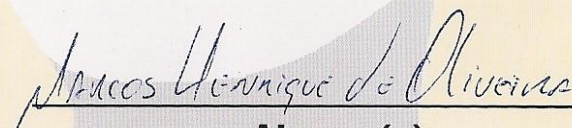 Marcos Henrique de Oliveira